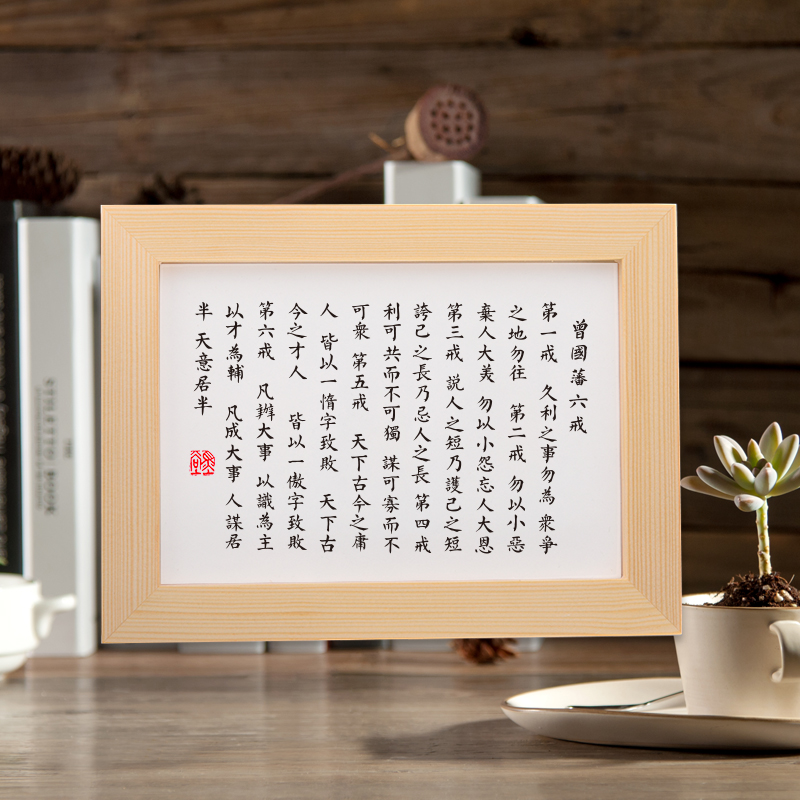 曾國藩六戒
第一戒 久利之事勿為 衆爭
之地勿往 第二戒 勿以小惡
棄人大美 勿以小怨忘人大恩
第三戒 説人之短乃護己之短
誇己之長乃忌人之長 第四戒
利可共而不可獨 謀可寡而不
可衆 第五戒 天下古今之庸
人 皆以一惰字致敗 天下古
今之才人 皆以一傲字致敗
第六戒 凡辦大事 以識為主
以才為輔 凡成大事 人謀居
半 天意居半